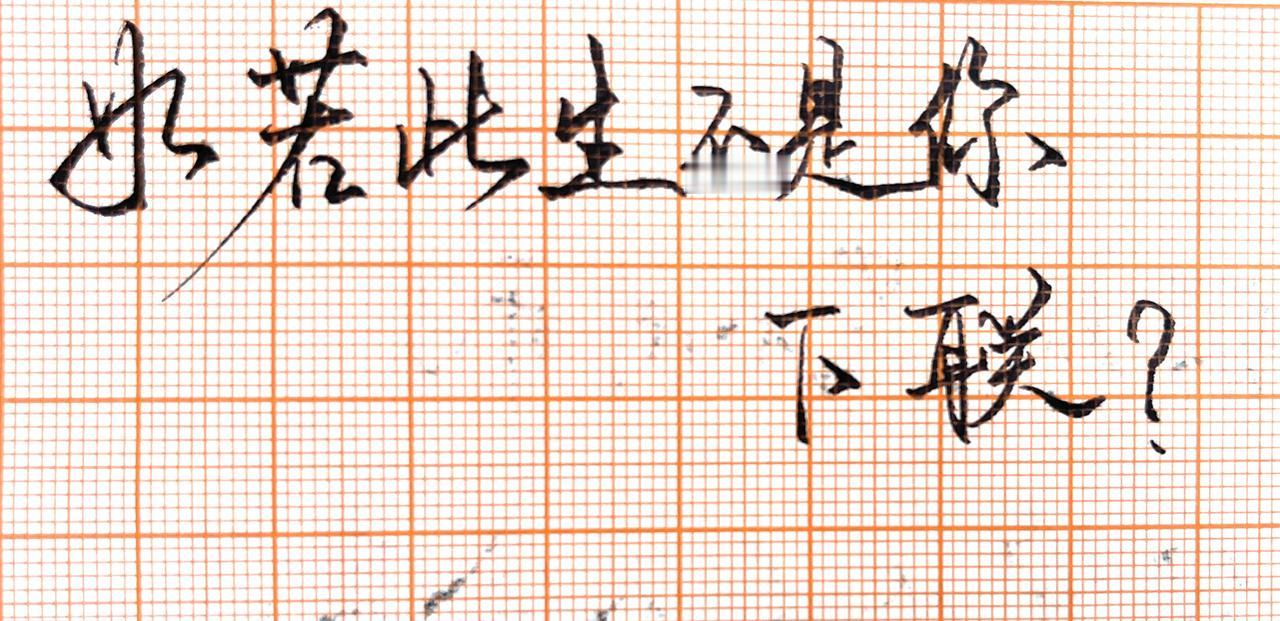 如若此生不是你、
下联?